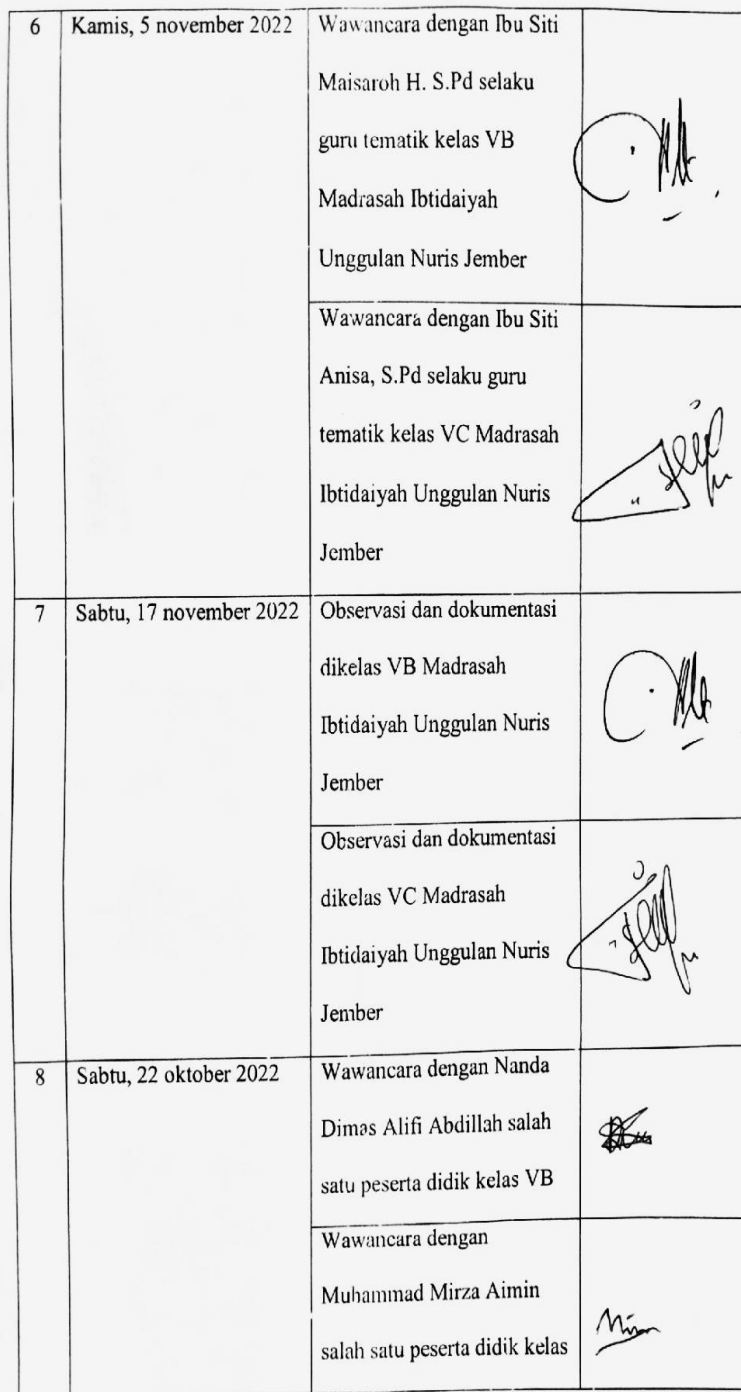 6 Kamis, 5 november 2022 Wawancara dengan Ibu Siti
Maisaroh H. S.Pd selaku
guru tematik kelas VB
Madrasah Ibtidaiyah
Unggulan Nuris Jember
Wawancara dengan Ibu Siti
Anisa, S.Pd selaku guru
tematik kelas VC Madrasah
Ibtidaiyah Unggulan Nuris
Jember
7 Sabtu, 17 november 2022 Observasi dan dokumentasi
dikelas VB Madrasah
Ibtidaiyah Unggulan Nuris
Jember
Observasi dan dokumentasi
dikelas VC Madrasah
Ibtidaiyah Unggulan Nuris
Jember
8 Sabtu, 22 oktober 2022 Wawancara dengan Nanda
Dimas Alifi Abdillah salah
satu peserta didik kelas VB
Wawancara dengan
Muhammad Mirza Aimin
salah satu peserta didik kelas